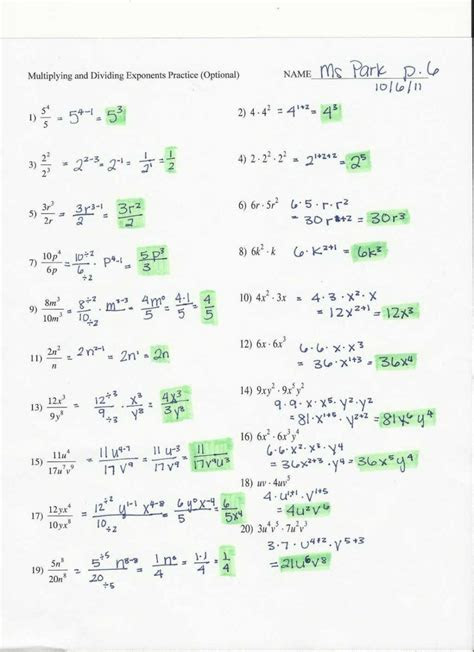 Multiplying and Dividing Exponents Practice (Optional) NAME Ms Park p. 6
10/6/11
1) 5⁴/5 = 5⁴⁻¹ = 5³
2) 4 · 4² = 4¹⁺² = 4³
3) 2²/2³ = 2²⁻³ = 2⁻¹ = 1/2¹ = 1/2
4) 2 · 2² · 2² = 2¹⁺²⁺² = 2⁵
5) 3r³/2r = 3r³⁻¹/2 = 3r²/2
6) 6r · 5r² 6 · 5 · r · r²
= 30r¹⁺² = 30r³
7) 10p⁴/6p = 10÷2/6÷2 · p⁴⁻¹ = 5p³/3
8) 6k² · k 6 · k²⁺¹ = 6k³
9) 8m³/10m³ = 8÷2/10÷2 · m³⁻³ = 4m⁰/5 = 4·1/5 = 4/5
10) 4x² · 3x = 4 · 3 · x² · x
= 12x²⁺¹ = 12x³
11) 2n²/n = 2n²⁻¹ = 2n¹ = 2n
12) 6x · 6x³ 6 · 6 · x · x³
= 36x¹⁺³ = 36x⁴
13) 12x³/9y⁸ = 12÷3/9÷3 · x³/y⁸ = 4x³/3y⁸
14) 9xy² · 9x⁵y²
9 · 9 · x · x⁵ · y² · y²
= 81 · x¹⁺⁵ · y²⁺² = 81x⁶y⁴
15) 11u⁴/17u⁷v⁹ = 11u⁴⁻⁷/17v⁹ = 11u⁻³/17v⁹ = 11/17v⁹u³
16) 6x² · 6x³y⁴
6 · 6 · x² · x³ · y⁴
= 36x²⁺³ · y⁴ = 36x⁵y⁴
17) 12yx⁴/10yx⁸ = 12÷2/10÷2 y¹⁻¹ x⁴⁻⁸ = 6y⁰x⁻⁴/5 = 6/5x⁴
18) uv · 4uv⁵
4 · u¹⁺¹ · v¹⁺⁵
= 4u²v⁶
19) 5n⁸/20n⁸ = 5÷5/20÷5 n⁸⁻⁸ = 1n⁰/4 = 1·1/4 = 1/4
20) 3u⁴v⁵ · 7u²v³
3 · 7 · u⁴⁺² · v⁵⁺³
= 21u⁶v⁸